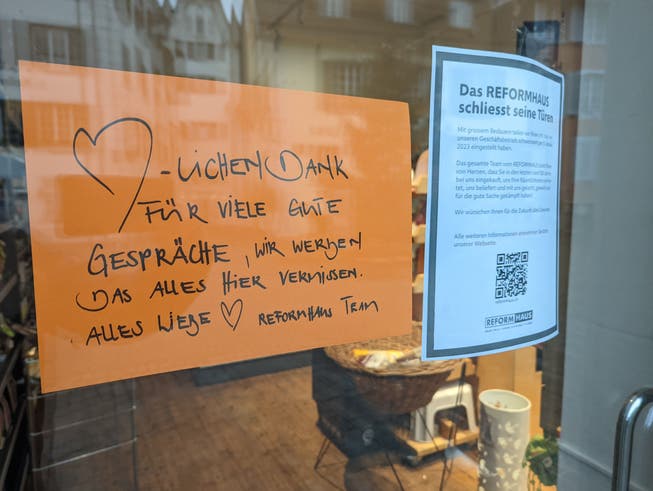 -LICHEN DANK
FÜR VIELE GUTE
GESPRÄCHE, WIR WERDEN
DAS ALLES HIER VERMISSEN.
ALLES LIEBE REFORMHAUS TEAM
Das REFORMHAUS
schliesst seine Türen
Mit grossem Bedauern teilen wir Ihnen mit, dass wir
unseren Geschäftsbetrieb
2023 eingestellt haben.
Das gesamte Team von REFORMHAUS
von Herzen, dass Sie in den letzten
bei uns eingekauft, uns Ihre
tet, uns beliefert und mit uns gelacht,
für die gute Sache gekämpft haben.
Wir wünschen Ihnen für die Zukunft
Alle weiteren Informationen
unserer Webseite.
REFORMHAUS